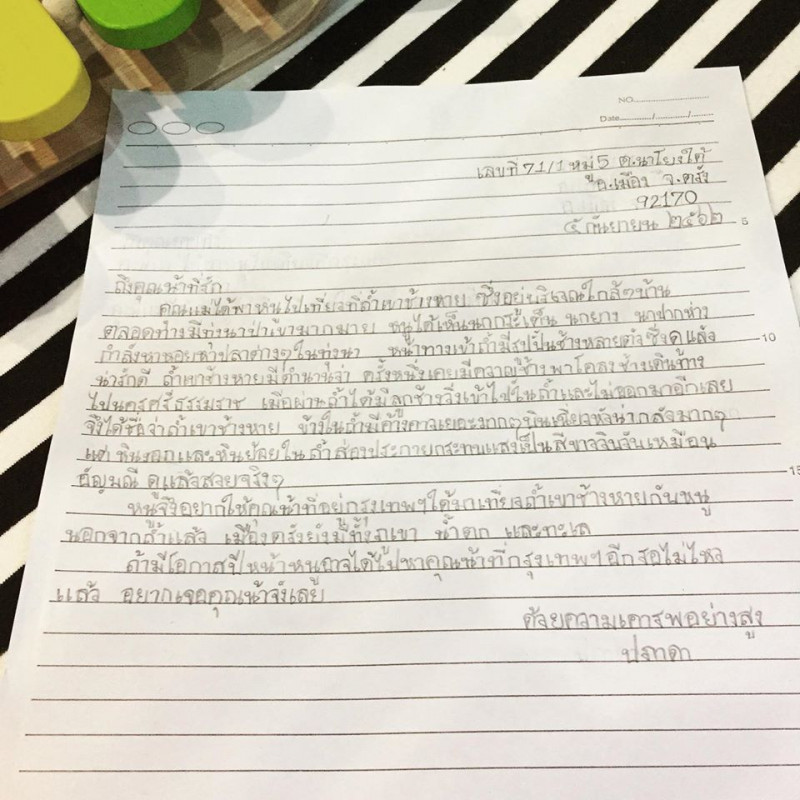 NO.
Date / /
เลขที่ 71/1 หมู่ 5 ต.นาโยงใต้
อ.เมือง จ.ตรัง
92170
๕ กันยายน ๒๕๖๒
5
ถึงคุณน้าที่รัก
คุณแม่ได้พาหนูไปเที่ยวที่ถ้ำเขาช้างหาย ซึ่งอยู่บริเวณใกล้ๆบ้าน
ตลอดทางมีทุ่งนาป่าเขามากมาย หนูได้เห็นนกกระเต็น นกยาง นกปากห่าง
กำลังหาหอยหาปลาต่างๆในทุ่งนา หน้าทางเข้าถ้ำมีรูปปั้นช้างหลายตัว ซึ่งดูแล้ว
10
น่ารักดี ถ้ำเขาช้างหายมีตำนานว่า ครั้งหนึ่งเคยมีควาญช้างพาโขลงช้างเดินทาง
ไปนครศรีธรรมราช เมื่อผ่านถ้ำได้มีลูกช้างวิ่งเข้าไปในถ้ำและไม่ออกมาอีกเลย
จึงได้ชื่อว่าถ้ำเขาช้างหาย ข้างในถ้ำมีค้างคาวเยอะมากๆบินเฉี่ยวหัวน่ากลัวมากๆ
แต่หินงอกและหินย้อยในถ้ำส่องประกายกระทบแสงเป็นสีขาววิบวับเหมือน
อัญมณี ดูแล้วสวยจริงๆ
15
หนูจึงอยากให้คุณน้าที่อยู่กรุงเทพฯได้มาเที่ยวถ้ำเขาช้างหายกับหนู
นอกจากถ้ำแล้ว เมืองตรังยังมีทั้งภูเขา น้ำตก และทะเล
ถ้ามีโอกาสปีหน้าหนูอาจได้ไปหาคุณน้าที่กรุงเทพฯอีก รอไม่ไหว
แล้ว อยากเจอคุณน้าจังเลย
ด้วยความเคารพอย่างสูง
ปภาดา